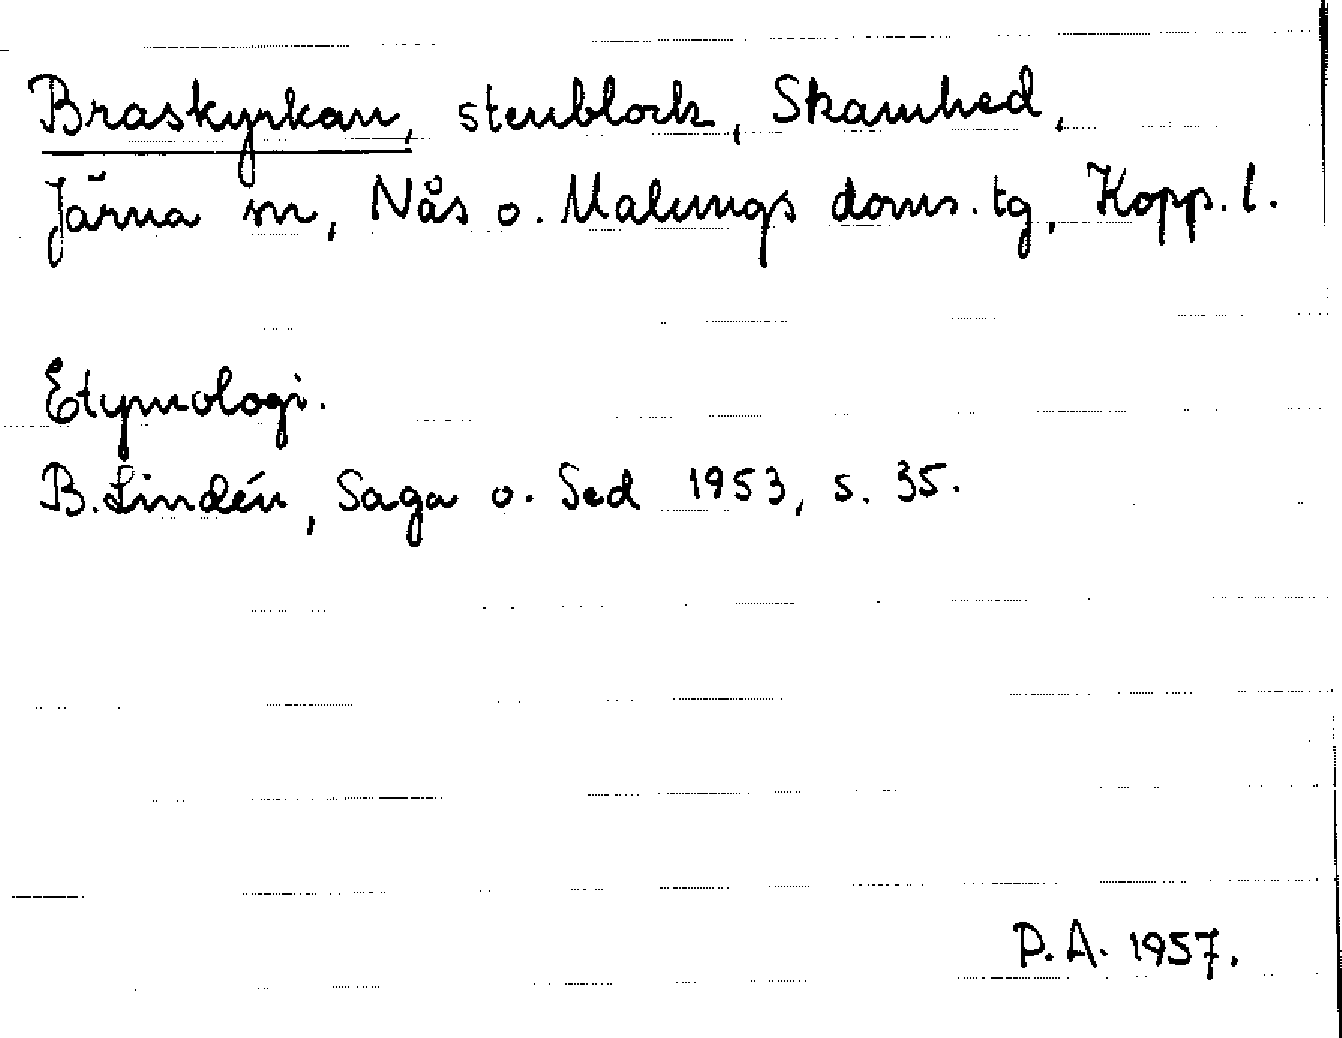 Braskyrkan, stenblock, Skamhed,
Järna sn, Nås o. Malungs doms. tg, Kopp. l.
Etymologi.
B. Lindén, Saga o. Sed 1953, s. 35.
P.A. 1957.